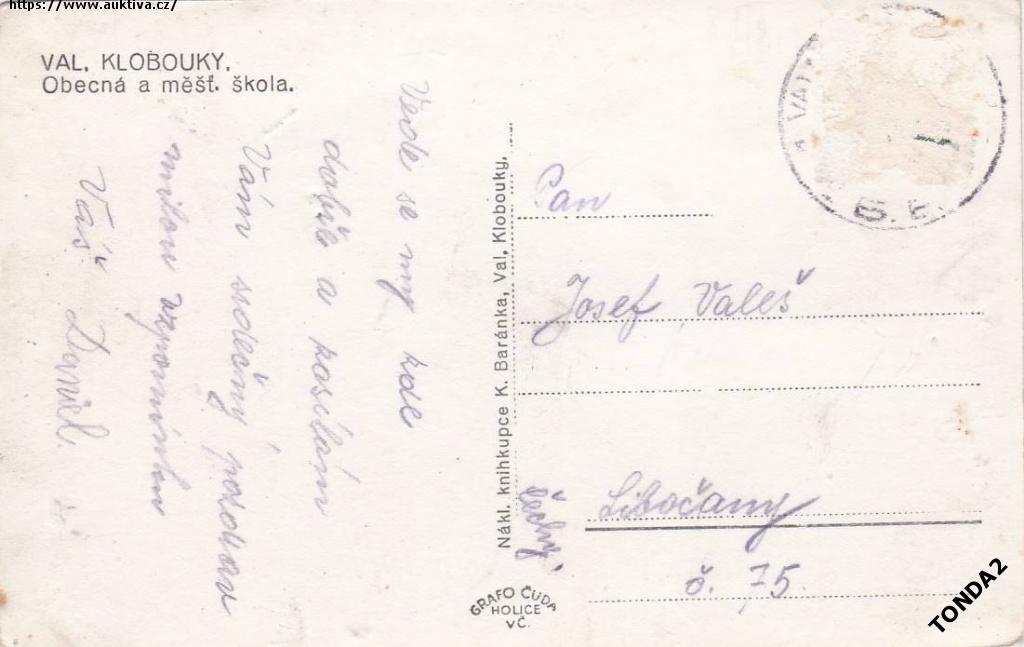 https://www.auktiva.cz/
VAL. KLOBOUKY.
Obecná a měšť. škola.
Vede se my zde
dobře a posílám
Vám srdečný pozdrav
i milou vzpomínku
Váš David
Nákl. knihkupce K. Baránka, Val. Klobouky.
Pan
Josef Valeš
Libočany
Čechy.
č. 75.
GRAFO ČUDA
HOLICE
VČ.
TONDA2